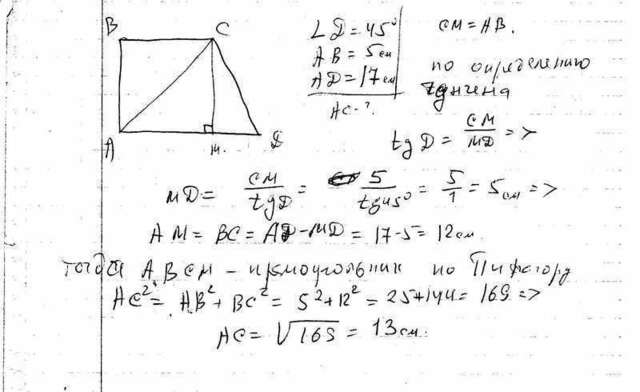 B C
A м. D
∠D = 45°
AB = 5 см
AD = 17 см
AC - ?
CM = AB.
по определению
тангенса
tg D = CM/MD =>
MD = CM/tg D = 5/tg 45° = 5/1 = 5 см =>
AM = BC = AD - MD = 17-5 = 12 см.
тогда ABCM - прямоугольник по Пифагору
AC² = AB² + BC² = 5² + 12² = 25 + 144 = 169 =>
AC = √169 = 13 см.